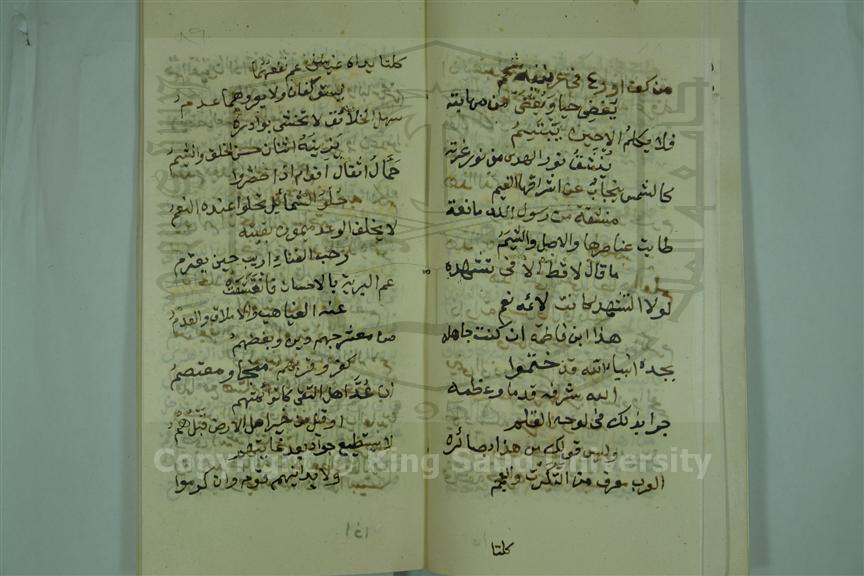 من كف اروع في عرنينه شمم
يغضي حيا ويغضى من مهابته
فلا يكلم الا حين يبتسم
ينشق نور الهدى من نور غرته
كالشمس ينجاب عن اشراقها الغيم
مشتقة من رسول الله نابعة
طابت عناصرها والاصل والشيم
ما قال لا قط الا في تشهده
لولا التشهد كانت لائه نعم
هذا ابن فاطمة ان كنت جاهله
بجده انبياء الله قد ختموا
الله شرفه قدما وعظمه
جرا بذلك في لوحه القلم
وليس قولك من هذا بضائره
العرب تعرف من انكرت والعجم
كلتا
كلتا يداه غياث عم نفعهما
يستوكفان ولا يعروهما عدم
سهل الخلائق لا تخشى بوادره
يزينه اثنان حسن الخلق والشيم
حمال اثقال اقوام اذا
حلو الشمائل تحلوا عنده النعم
لا يخلف الوعد ميمون نقيبته
رحب الفناء اريب حين يعتزم
عم البرية بالاحسان فانقشعت
عنه الغياهب والاملاق والعدم
من معشر حبهم دين وبغضهم
كفر وقربهم منجا ومعتصم
ان عد اهل التقى كانوا ائمتهم
او قيل من خير اهل الارض قيل هم
لا يستطيع جواد بعد غايتهم
ولا يدانيهم قوم وان كرموا
Copyright © King Saud University